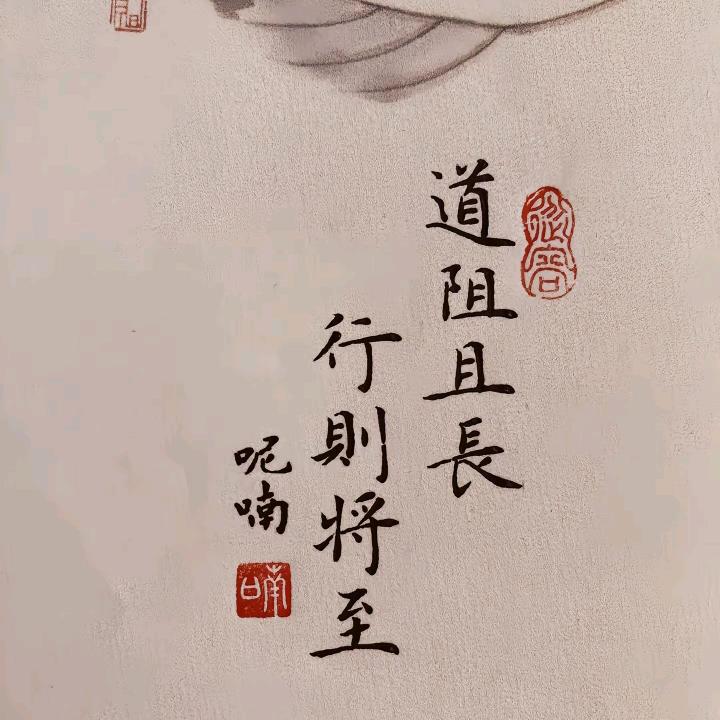 道阻且長
行則将至
呢喃
喃